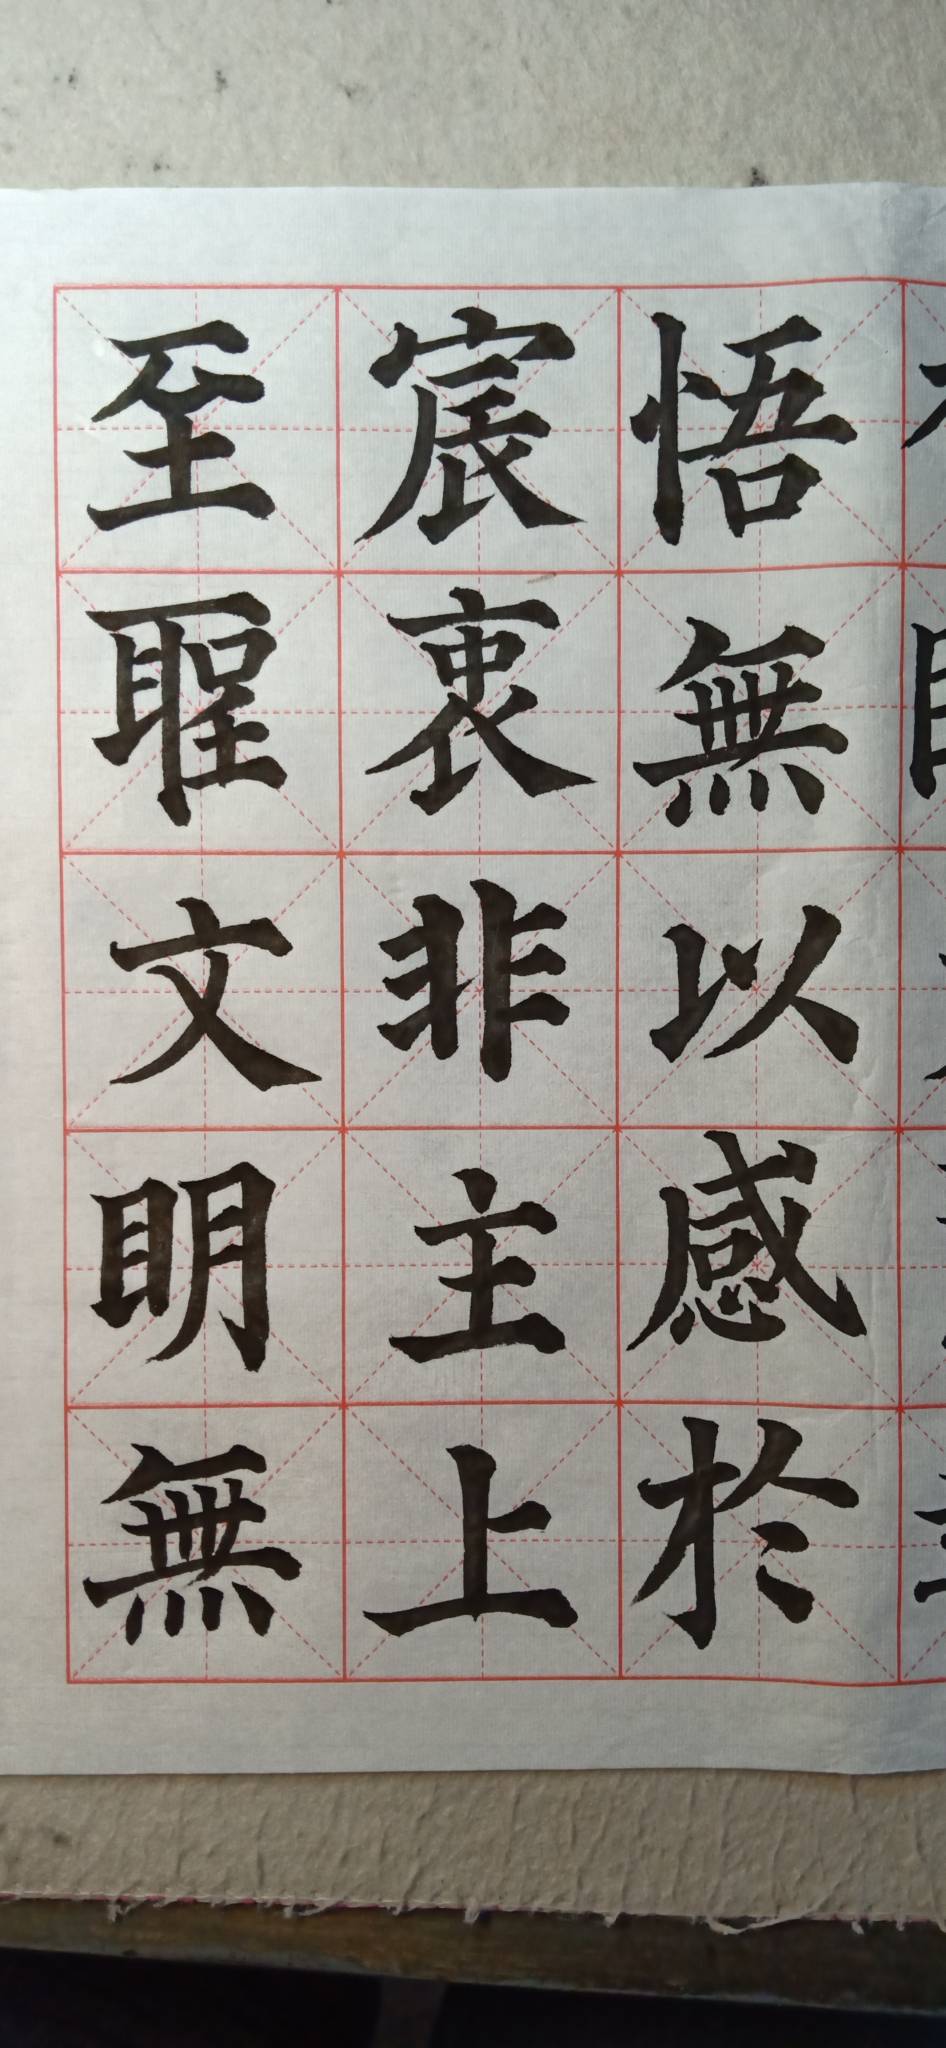 悟無以感於
宸衷非主上
至聖文明無